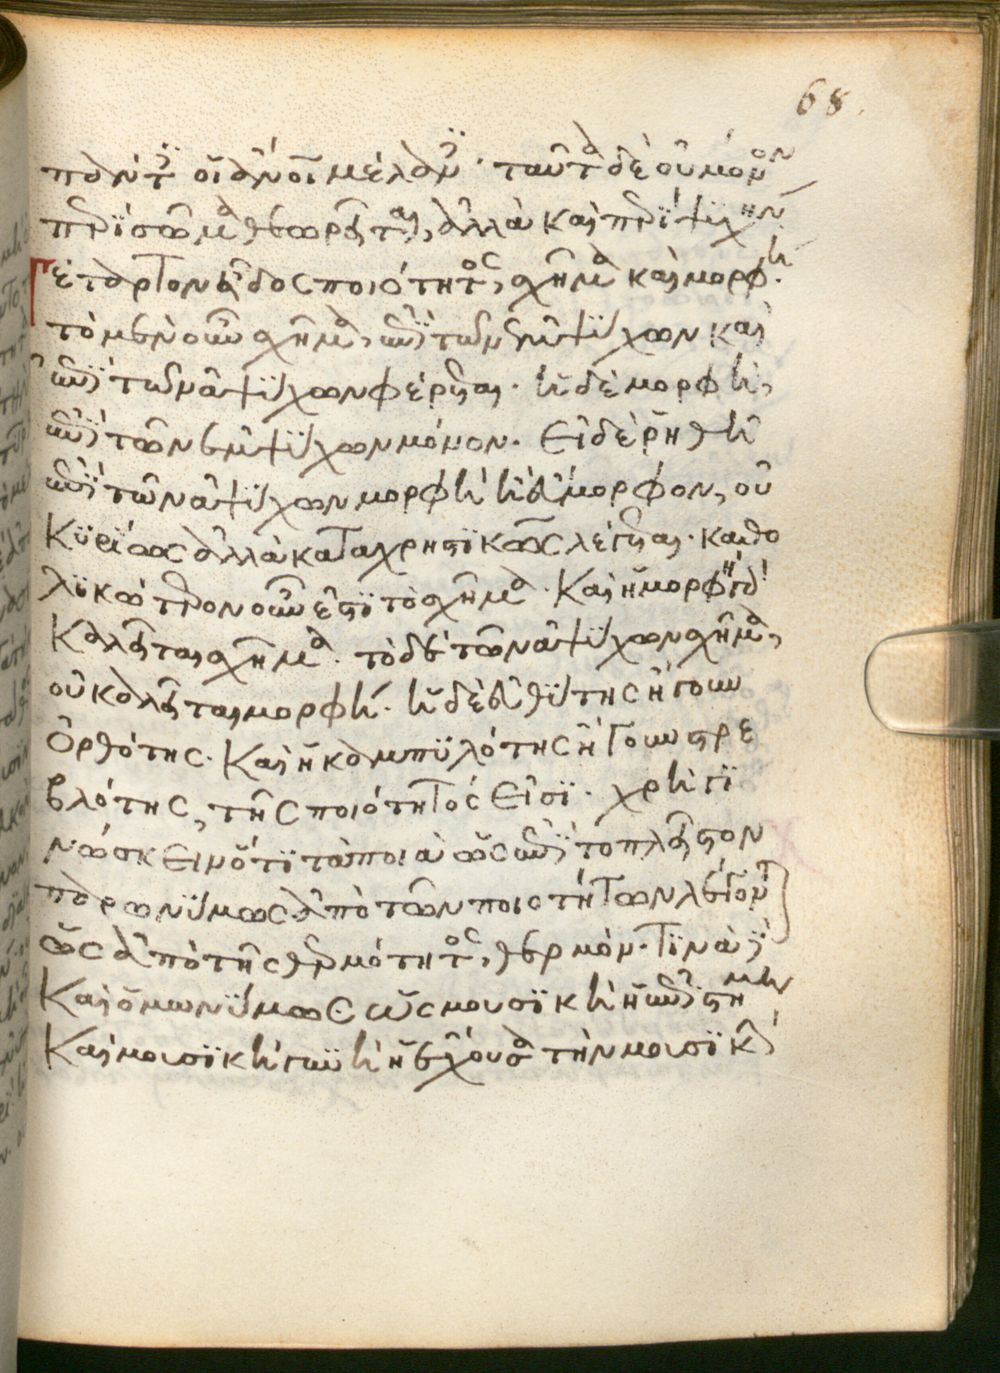 68.
ταῦτα δὲ οὐ μόνον
περὶ σῶμα θεωρεῖται, ἀλλὰ καὶ περὶ ψυχήν
τέταρτον εἶδος ποιότητος, σχῆμα καὶ μορφή.
τὸ μὲν οὖν σχῆμα, ἐπὶ τῶν ἐμψύχων καὶ
ἐπὶ τῶν ἀψύχων φέρεται. ἡ δὲ μορφή,
ἐπὶ τῶν ἐμψύχων μόνον. εἰ δὲ ῥηθῆ
ἐπὶ τῶν ἀψύχων μορφὴ ἢ ἄμορφον, οὐ
κυρίως ἀλλὰ καταχρηστικῶς λέγεται. καθο
λικώτερον οὖν ἐστὶ τὸ σχῆμα. καὶ ἡ μορφὴ
καλεῖται σχῆμα. τὸ δὲ τῶν ἀψύχων σχῆμα,
οὐ καλεῖται μορφή. ἡ δὲ εὐθύτης ἤγουν
ὀρθότης. καὶ ἡ καμπυλότης ἤγουν στρε
βλότης, τῆς ποιότητός εἰσι. χρὴ γι
νώσκειν ὅτι τὰ ποιὰ ὡς ἐπὶ τὸ πλεῖστον
παρωνύμως ἀπὸ τῶν ποιοτήτων λέγονται
ὡς ἀπὸ τῆς θερμότητος, θερμόν. τινὰ
καὶ ὁμωνύμως ὡς μουσικὴ ἡ ἐπιστήμη
καὶ μουσικὴ γυνὴ ἡ ἔχουσα τὴν μουσικὴν